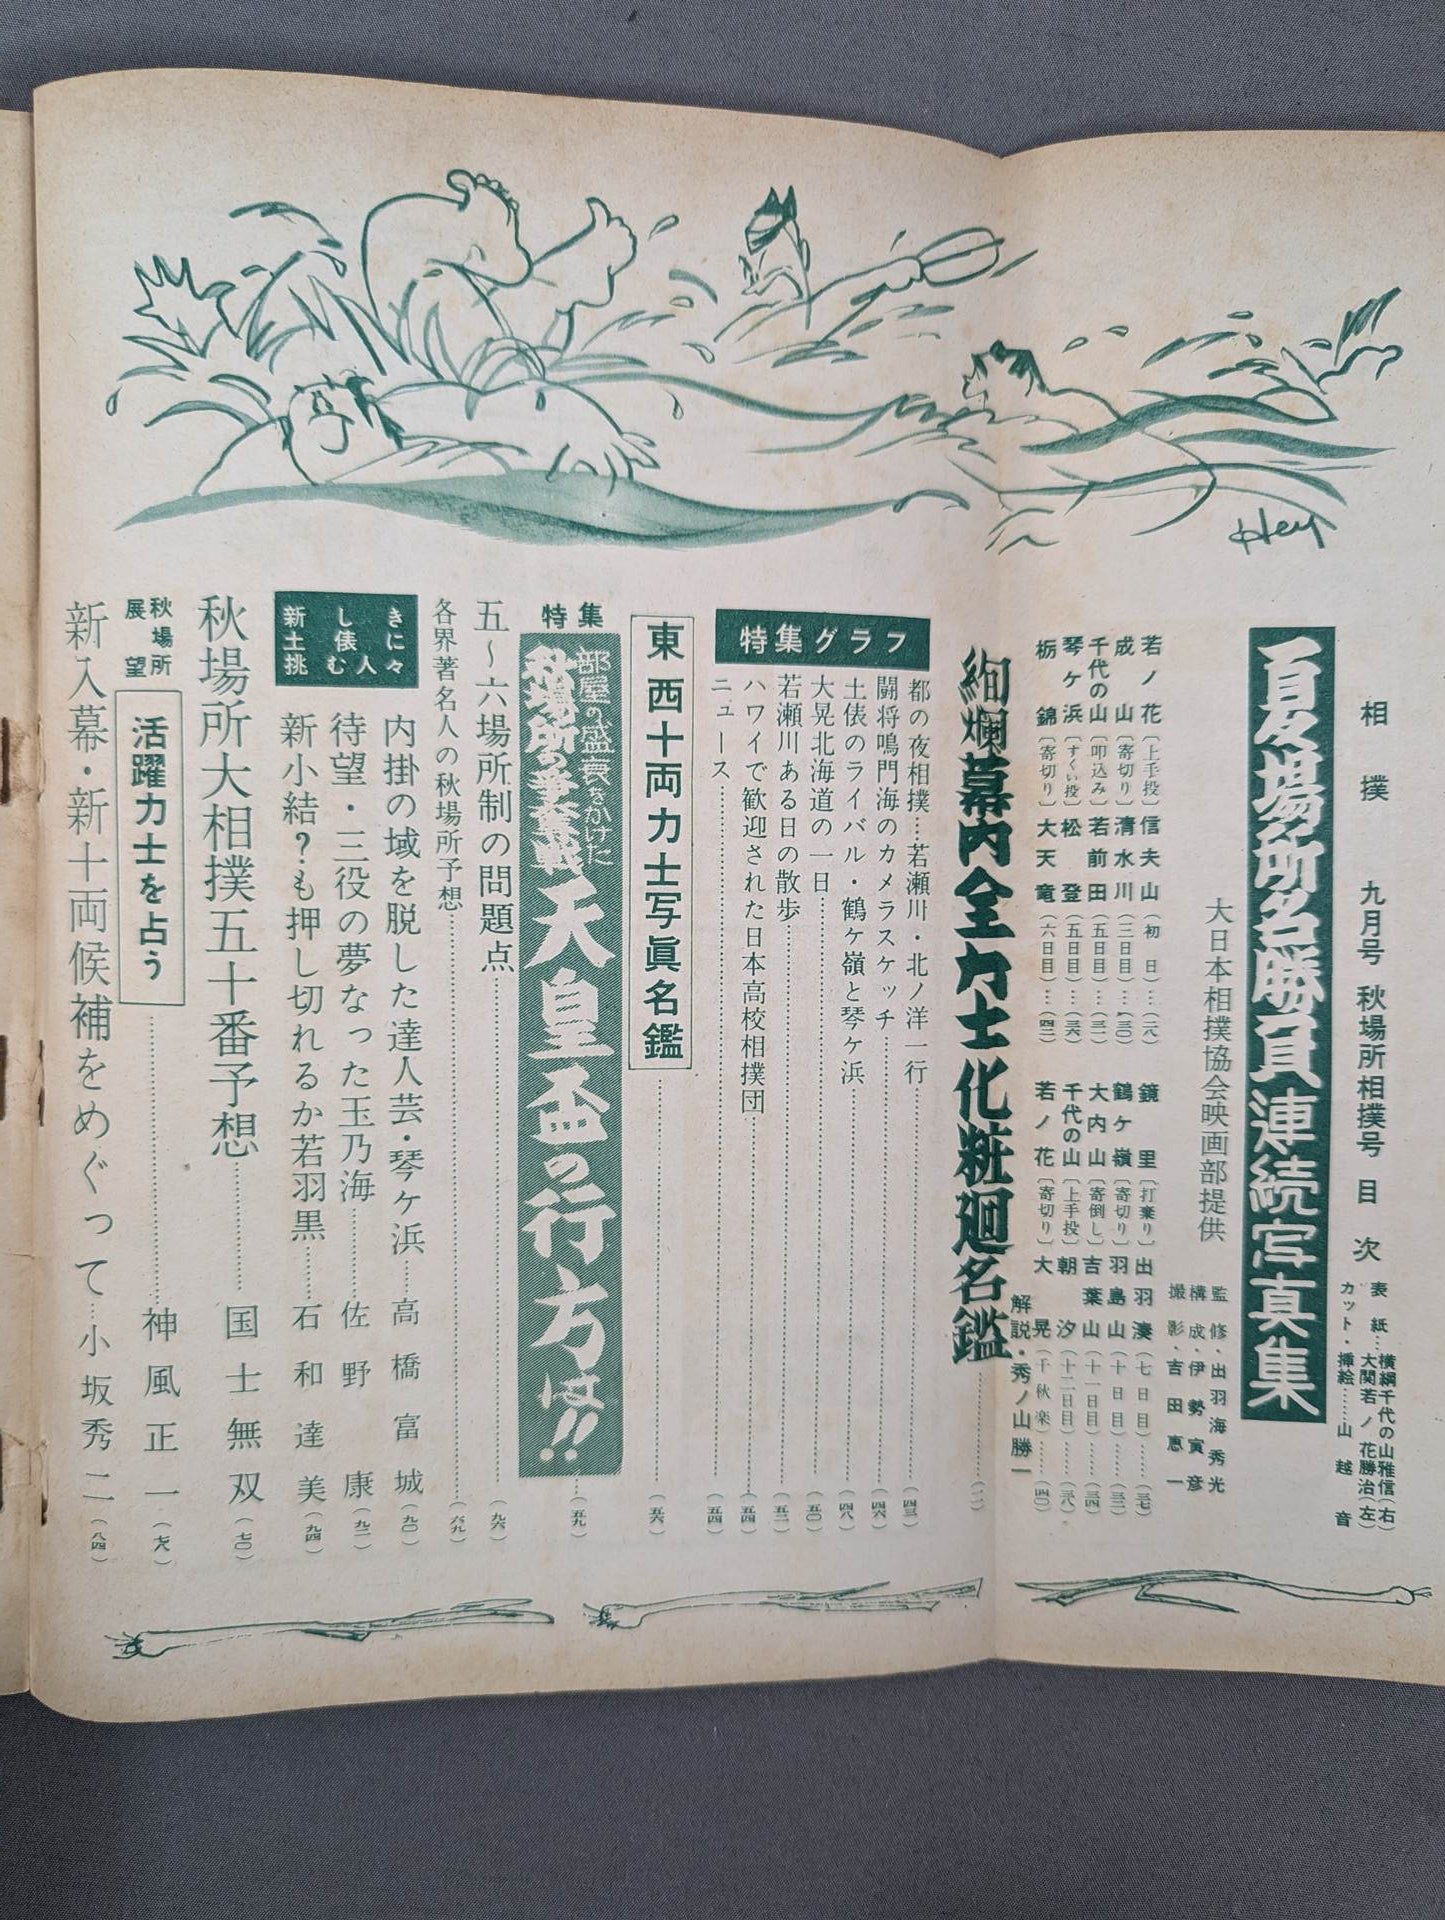 相撲 九月号 秋場所相撲号 目次
表紙…横綱千代の山雅信(右)
大関若ノ花勝治(左)
カット・挿絵……山越音
夏場所名勝負連続写真集
大日本相撲協会映画部提供
監修・出羽海秀光
構成・伊勢寅彦
撮影・吉田恵一
若ノ花〔上手投〕信夫山(初日)…(二八)
成山〔寄切り〕清水川(三日目)…(三〇)
千代の山〔叩込み〕若前田(五日目)…(三二)
琴ケ浜〔すくい投〕松登(五日目)…(三六)
栃錦〔寄切り〕大天竜(六日目)…(四二)
鏡里〔打棄り〕出羽湊(七日目)……(三七)
鶴ケ嶺〔寄切り〕羽島山(十日目)……(三三)
大内山〔寄倒し〕吉葉山(十一日目)……(三四)
千代の山〔上手投〕朝汐(十二日目)……(三八)
若ノ花〔寄切り〕大晃(千秋楽)……(四〇)
解説・秀ノ山勝一
絢爛幕内全力士化粧廻名鑑……(一一)
特集グラフ
都の夜相撲…若瀬川・北ノ洋一行……(四三)
闘将鳴門海のカメラスケッチ……(四六)
土俵のライバル・鶴ケ嶺と琴ケ浜……(四八)
大晃北海道の一日……(五〇)
若瀬川ある日の散歩……(五二)
ハワイで歓迎された日本高校相撲団……(五四)
ニュース……(五四)
東西十両力士写眞名鑑……(五六)
特集
部屋の盛衰をかけた
秋場所の争奪戦
天皇盃の行方は!!……(五九)
五〜六場所制の問題点……(九六)
各界著名人の秋場所予想……(六九)
新しきに
土俵々
挑む人
内掛の域を脱した達人芸・琴ケ浜…高橋富城(九〇)
待望・三役の夢なった玉乃海……佐野康(九二)
新小結?も押し切れるか若羽黒……石和達美(九四)
秋場所大相撲五十番予想……国士無双(七〇)
秋場所展望
活躍力士を占う……神風正一(七八)
新入幕・新十両候補をめぐって…小坂秀二(八四)